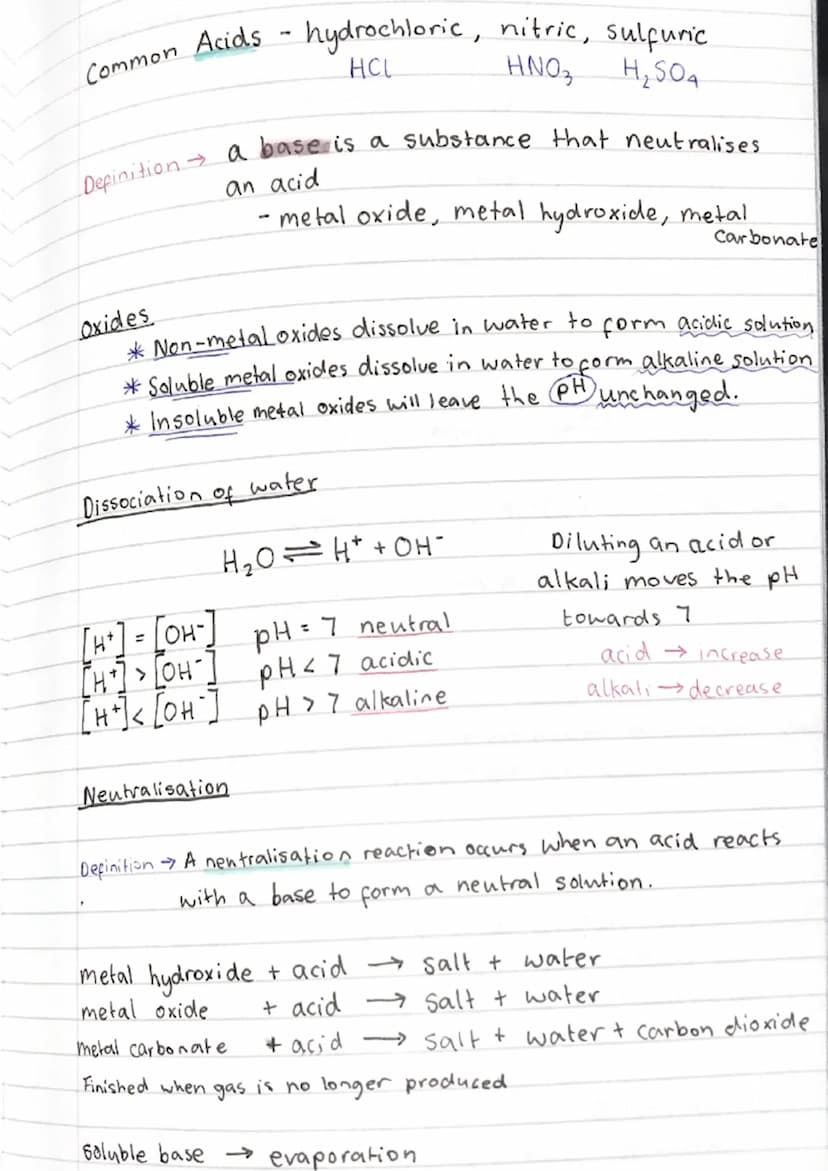 Common Acids - hydrochloric, nitric, sulfuric
HCl HNO₃ H₂SO₄
Definition → a base is a substance that neutralises
an acid
- metal oxide, metal hydroxide, metal
carbonate
Oxides
* Non-metal oxides dissolve in water to form acidic solution
* Soluble metal oxides dissolve in water to form alkaline solution
* Insoluble metal oxides will leave the pH unchanged.
Dissociation of water
H₂O ⇌ H⁺ + OH⁻
[H⁺] = [OH⁻] pH = 7 neutral
[H⁺] > [OH⁻] pH < 7 acidic
[H⁺] < [OH⁻] pH > 7 alkaline
Diluting an acid or
alkali moves the pH
towards 7
acid → increase
alkali → decrease
Neutralisation
Definition → A neutralisation reaction occurs when an acid reacts
with a base to form a neutral solution.
metal hydroxide + acid → salt + water
metal oxide + acid → salt + water
metal carbonate + acid → salt + water + carbon dioxide
Finished when gas is no longer produced
Soluble base → evaporation